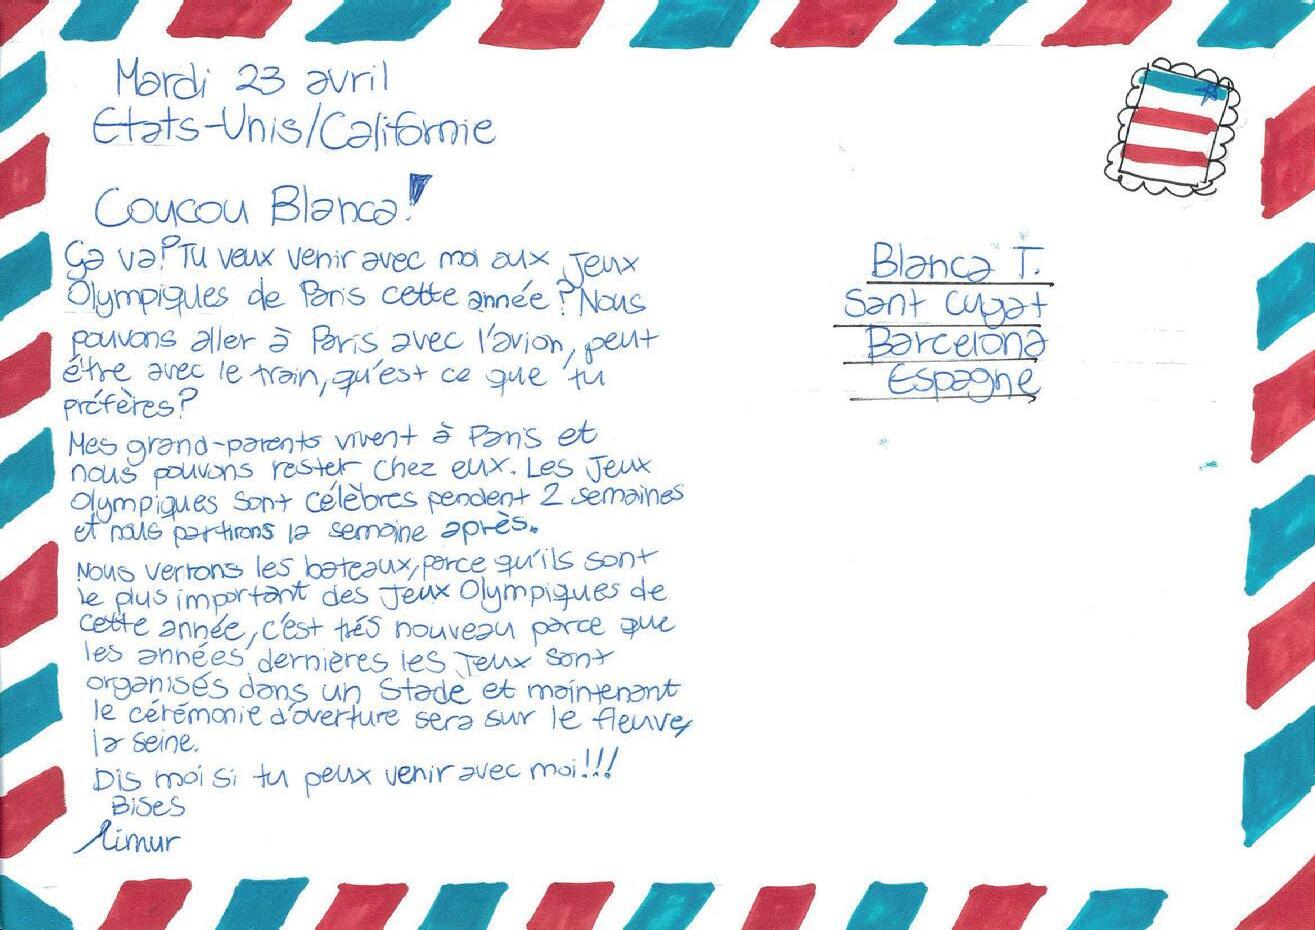 Mardi 23 avril
Etats-Unis/Californie
Coucou Blanca!
Ça va? Tu veux venir avec moi aux Jeux
Olympiques de Paris cette année? Nous
pouvons aller à Paris avec l'avion, peut
être avec le train, qu'est ce que tu
préfères?
Mes grand-parents vivent à Paris et
nous pouvons rester chez eux. Les Jeux
Olympiques sont célèbres pendent 2 semaines
et nous partirons la semaine après.
Nous verrons les bateaux, parce qu'ils sont
le plus important des Jeux Olympiques de
cette année, c'est trés nouveau parce que
les années dernières les Jeux sont
organisés dans un Stade et maintenant
le cérémonie d'overture sera sur le fleuve,
la seine.
Dis moi si tu peux venir avec moi!!!
Bises
Timur
Blanca T.
Sant Cugat
Barcelona
Espagne